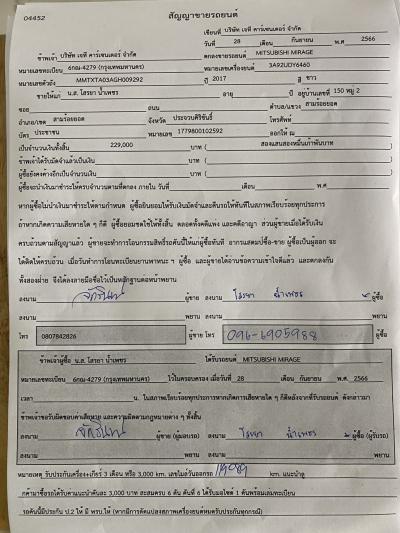 04452
สัญญาขายรถยนต์
เขียนที่ บริษัท เจที คาร์เซนเตอร์ จำกัด
วันที่ 28 เดือน กันยายน พ.ศ 2566
ข้าพเจ้า บริษัท เจที คาร์เซนเตอร์ จำกัด ตกลงขายรถยนต์ MITSUBISHI MIRAGE
หมายเลขทะเบียน 6กฌ-4279 (กรุงเทพมหานคร) หมายเลขเครื่องยนต์ 3A92UDY6460
หมายเลขตัวถัง MMTXTA03AGH009292 ปี 2017 สี ขาว
ขายให้แก่ น.ส. โสรยา น้ำเพชร อายุ ปี อยู่บ้านเลขที่ 150 หมู่ 2
ซอย ถนน ตำบล/แขวง สามร้อยยอด
อำเภอ/เขต สามร้อยยอด จังหวัด ประจวบคิรีขันธ์ โทรศัพท์
บัตร ประชาชน หมายเลข 1779800102592 ออกให้ ณ
เป็นจำนวนเงินทั้งสิ้น 229,000 บาท ( สองแสนสองหมื่นเก้าพันบาท )
ข้าพเจ้าได้รับมัดจำแล้วเป็นเงิน บาท ( )
ผู้ซื้อยังคงค้างอีกเป็นจำนวนเงิน บาท ( )
ผู้ซื้อจะนำเงินมาชำระให้ครบจำนวนตามที่ตกลง ภายใน วันที่ เดือน พ.ศ.
หากผู้ซื้อไม่นำเงินมาชำระให้ตามกำหนด ผู้ซื้อยินยอมให้ริบเงินมัดจำและคืนรถให้ทันทีในสภาพเรียบร้อยทุกประการ
ถ้าหากเกิดความเสียหายใด ๆ ก็ดี ผู้ซื้อยอมชดใช้ให้ทั้งสิ้น ตลอดทั้งคดีแพ่ง และคดีอาญา ส่วนผู้ขายเมื่อได้รับเงิน
ครบถ้วนตามสัญญาแล้ว ผู้ขายจะทำการโอนกรรมสิทธิ์รถคันนี้ให้แก่ผู้ซื้อทันที อากรแสตมป์ซื้อ-ขาย ผู้ซื้อเป็นผู้ออก จะ
ได้คิดให้ครบถ้วน เมื่อวันทำการโอนทะเบียนยานพาหนะ ฯ ผู้ซื้อ และผู้ขายได้อ่านข้อความเข้าใจดีแล้ว และตกลงกัน
ทั้งสองฝ่าย จึงได้ลงลายมือชื่อไว้เป็นหลักฐานต่อหน้าพยาน
ลงนาม จักรินทร์ ผู้ขาย ลงนาม โสรยา น้ำเพชร ผู้ซื้อ
ลงนาม พยาน ลงนาม พยาน
โทร 0807842826 ผู้ขาย โทร 096-6905988 ผู้ซื้อ
ข้าพเจ้าผู้ซื้อ น.ส. โสรยา น้ำเพชร ได้รับรถยนต์ MITSUBISHI MIRAGE
หมายเลขทะเบียน 6กฌ-4279 (กรุงเทพมหานคร) ไว้ในครอบครอง เมื่อวันที่ 28 เดือน กันยายน พ.ศ. 2566
เวลา น. ในสภาพเรียบร้อยทุกประการหากเกิดการเสียหายใด ๆ ก็ดีหลังจากที่รับรถยนต์ ดังกล่าวมา
ข้าพเจ้าขอรับผิดชอบค่าเสียหาย และความผิดตามกฎหมายต่าง ๆ ทั้งสิ้น
ลงนาม จักรินทร์ ผู้ขาย (ผู้มอบรถ) ลงนาม โสรยา น้ำเพชร ผู้ซื้อ (ผู้รับรถ)
ลงนาม พยาน ลงนาม พยาน
หมายเหตุ รับประกันเครื่อง+เกียร์ 3 เดือน หรือ 3,000 km. เลขไมล์วันออกรถ km. แนะนำลู
กค้ามาซื้อรถได้รับค่าแนะนำคันละ 3,000 บาท สะสมครบ 6 คัน คันที่ 6 ได้รับมอไซค์ 1 คันพร้อมเล่มทะเบียน
รถคันนี้มีประกัน ป.2 ให้ มี พรบ.ให้ (หากมีการดัดแปลงสภาพเครื่องยนต์หมดรับประกันทุกกรณี)